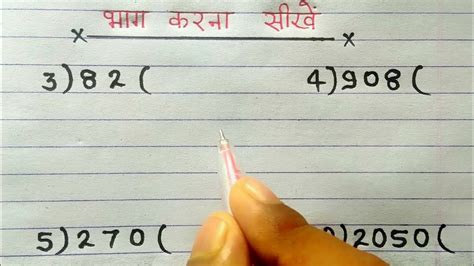 भाग करना सीखें
x x
3)82( 4)908(
5)270( )2050(